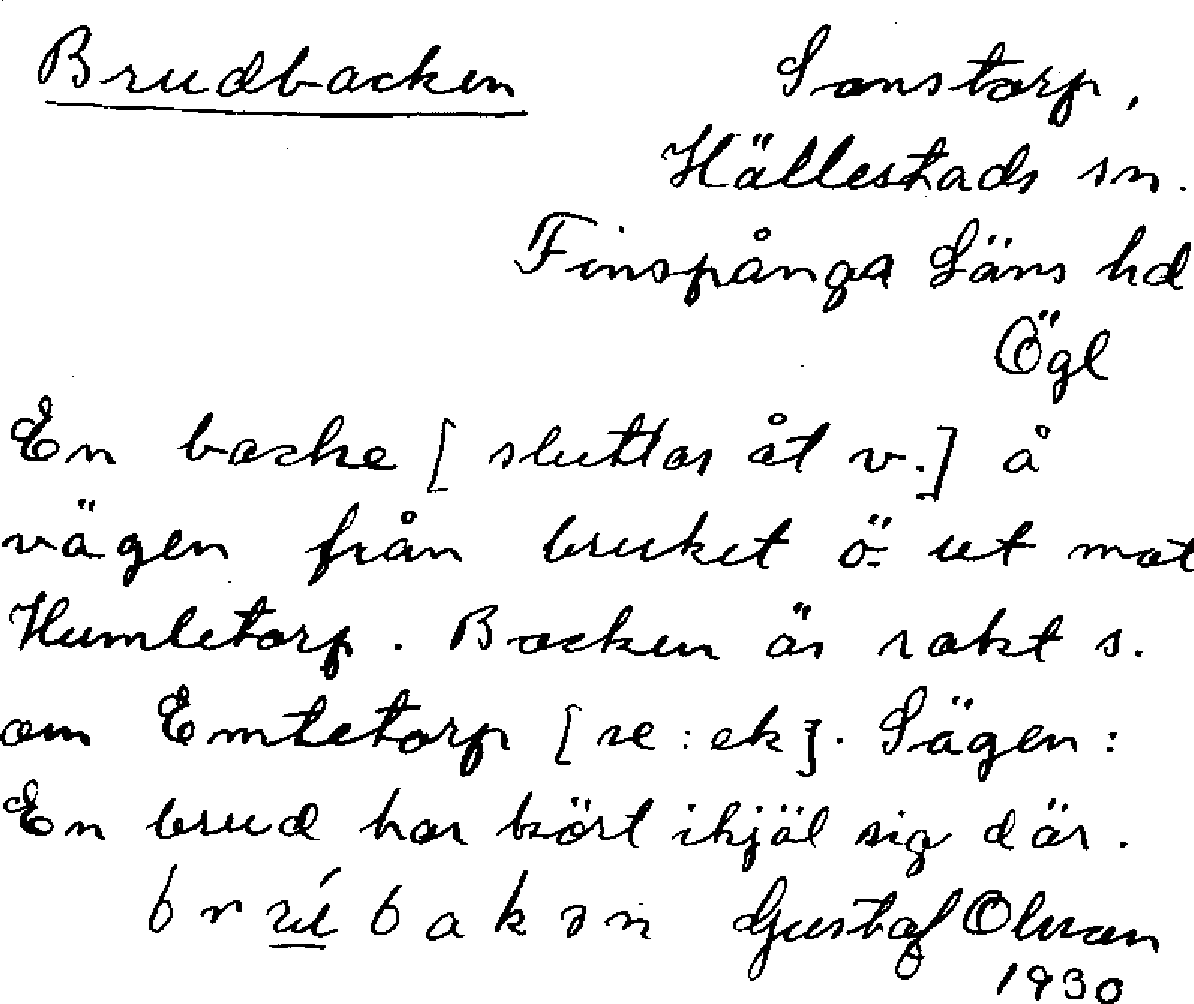 Brudbacken Sonstorp,
Hällestads sn.
Finspånga Läns hd
Ögl
En backe [sluttar åt v.] å
vägen från bruket ö- ut mot
Humletorp. Backen är rakt s.
om Emtetorp [se: ek]. Sägen:
En brud har kört ihjäl sig där.
brúbakən Gustaf Olsson
1930